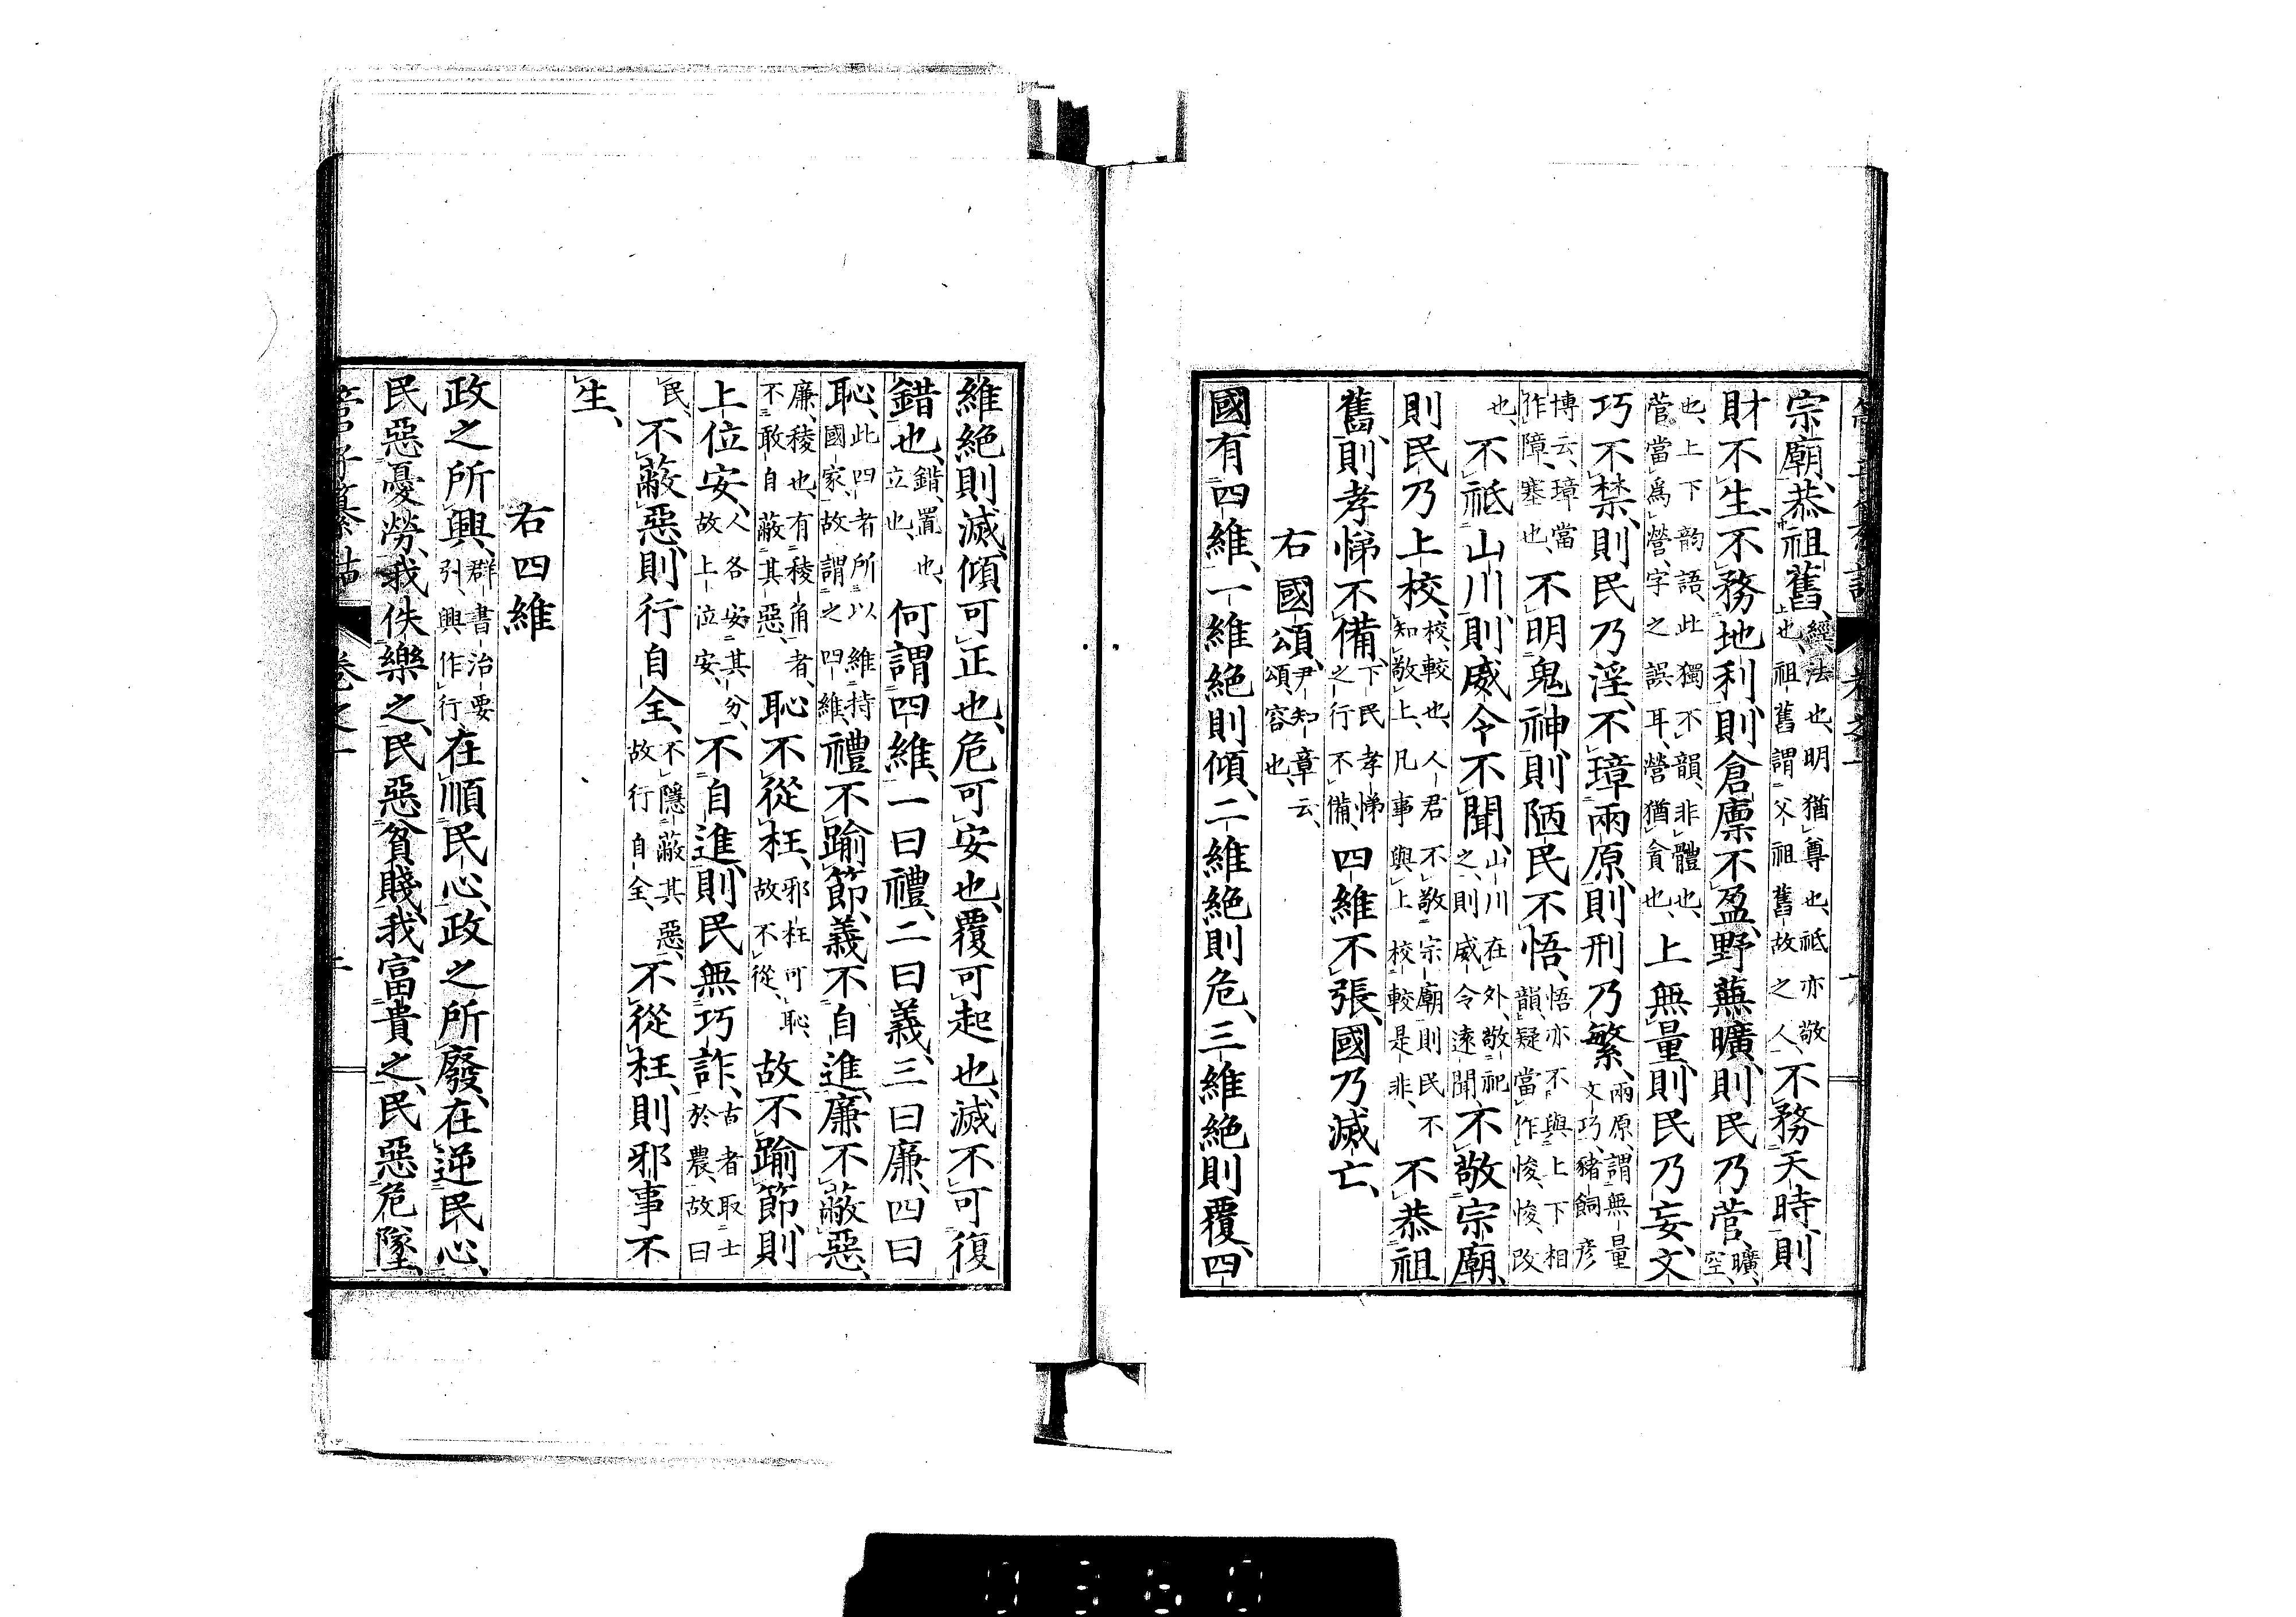 宗廟、恭祖舊、經、法也、明猶尊也、祗亦敬上也、祖舊謂父祖舊故之人、不務天時、則
財不生、不務地利、則倉廩不盈、野蕪曠、則民乃菅、曠、空
也、上下韵語、此獨不韻、非體也、菅當爲營、字之誤耳、營猶貪也、上無量、則民乃妄、文
巧不禁、則民乃淫、不璋兩原、則刑乃繁、兩原、謂無量文巧、豬飼彦
博云、璋當作障、塞也、不明鬼神、則陋民不悟、悟亦不與上下相韻、疑當作悛、悛、改
也、不祗山川、則威令不聞、山川在外、敬祀之、則威令遠聞、不敬宗廟、
則民乃上校、校、較也、人君不敬宗廟、則民不知敬上、凡事與上校較是非、不恭祖
舊、則孝悌不備、下民孝悌之行不備、四維不張、國乃滅亡、
右國頌、尹知章云、頌、容也、
國有四維、一維絶則傾、二維絶則危、三維絶則覆、四
維絶則滅、傾可正也、危可安也、覆可起也、滅不可復
錯也、錯、置也、立也、何謂四維、一曰禮、二曰義、三曰廉、四曰
恥、此四者所以維持國家、故謂之四維、禮不踰節、義不自進、廉不蔽惡、
廉、稜也、有稜角者、不敢自蔽其惡、恥不從枉、邪枉可恥、故不從、故不踰節、則
上位安、人各安其分、故上位安、不自進、則民無巧詐、古者取士於農、故曰
民、不蔽惡、則行自全、不隱蔽其惡、故行自全、不從枉、則邪事不
生、
右四維
政之所興、群書治要引、興作行、在順民心、政之所廢、在逆民心、
民惡憂勞、我佚樂之、民惡貧賤、我富貴之、民惡危墜、
管子纂詁 卷之一